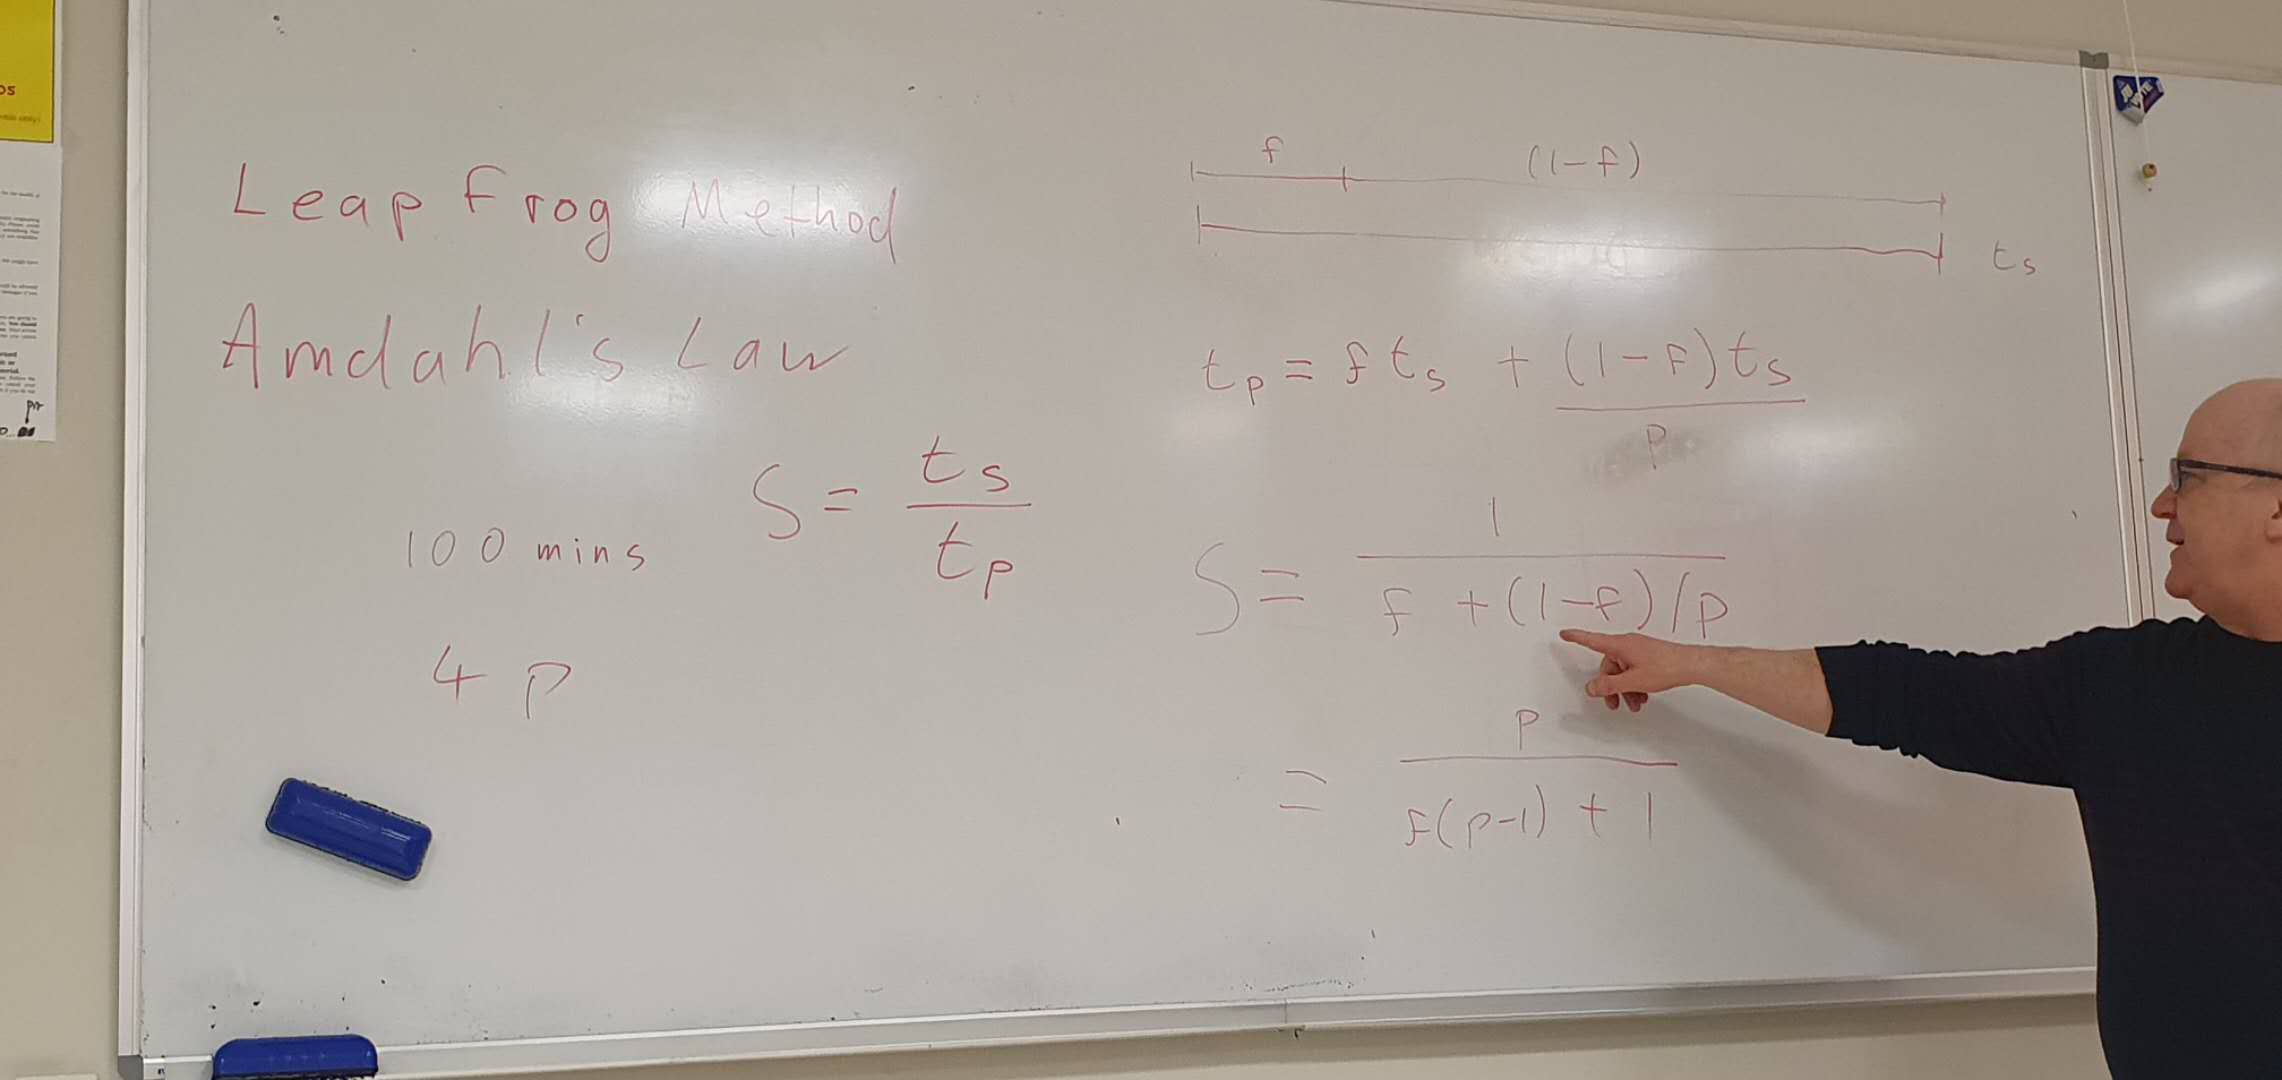 Leap Frog Method
Amdahl's Law
100 mins
4 p
S = ts / tp
f (1-f)
ts
tp = f ts + (1-f) ts / p
S = 1 / f + (1-f)/p
= p / f(p-1) + 1
VOTE